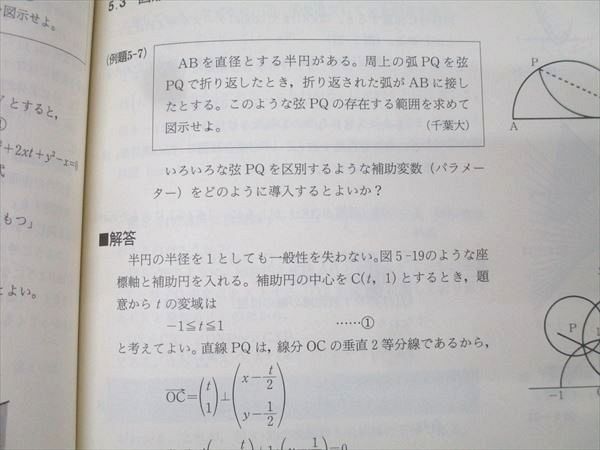 図示せよ。
5.3
とすると,
①
+2xt+y²-x=0
式
もつ」
とよい。
(例題5-7)
ABを直径とする半円がある。周上の弧PQを弦
PQで折り返したとき，折り返された弧がABに接し
たとする。このような弦PQの存在する範囲を求めて
図示せよ。
(千葉大)
いろいろな弦PQを区別するような補助変数（パラメー
ター）をどのように導入するとよいか？
■解答
半円の半径を1としても一般性を失わない。図5-19のような座
標軸と補助円を入れる。補助円の中心をC(t, 1)とするとき，題
意からtの変域は
-1≦t≦1 ……①
と考えてよい。直線PQは，線分OCの垂直2等分線であるから，
OC=(t 1)⊥(x-t/2 y-1/2)
P
A
P
-1